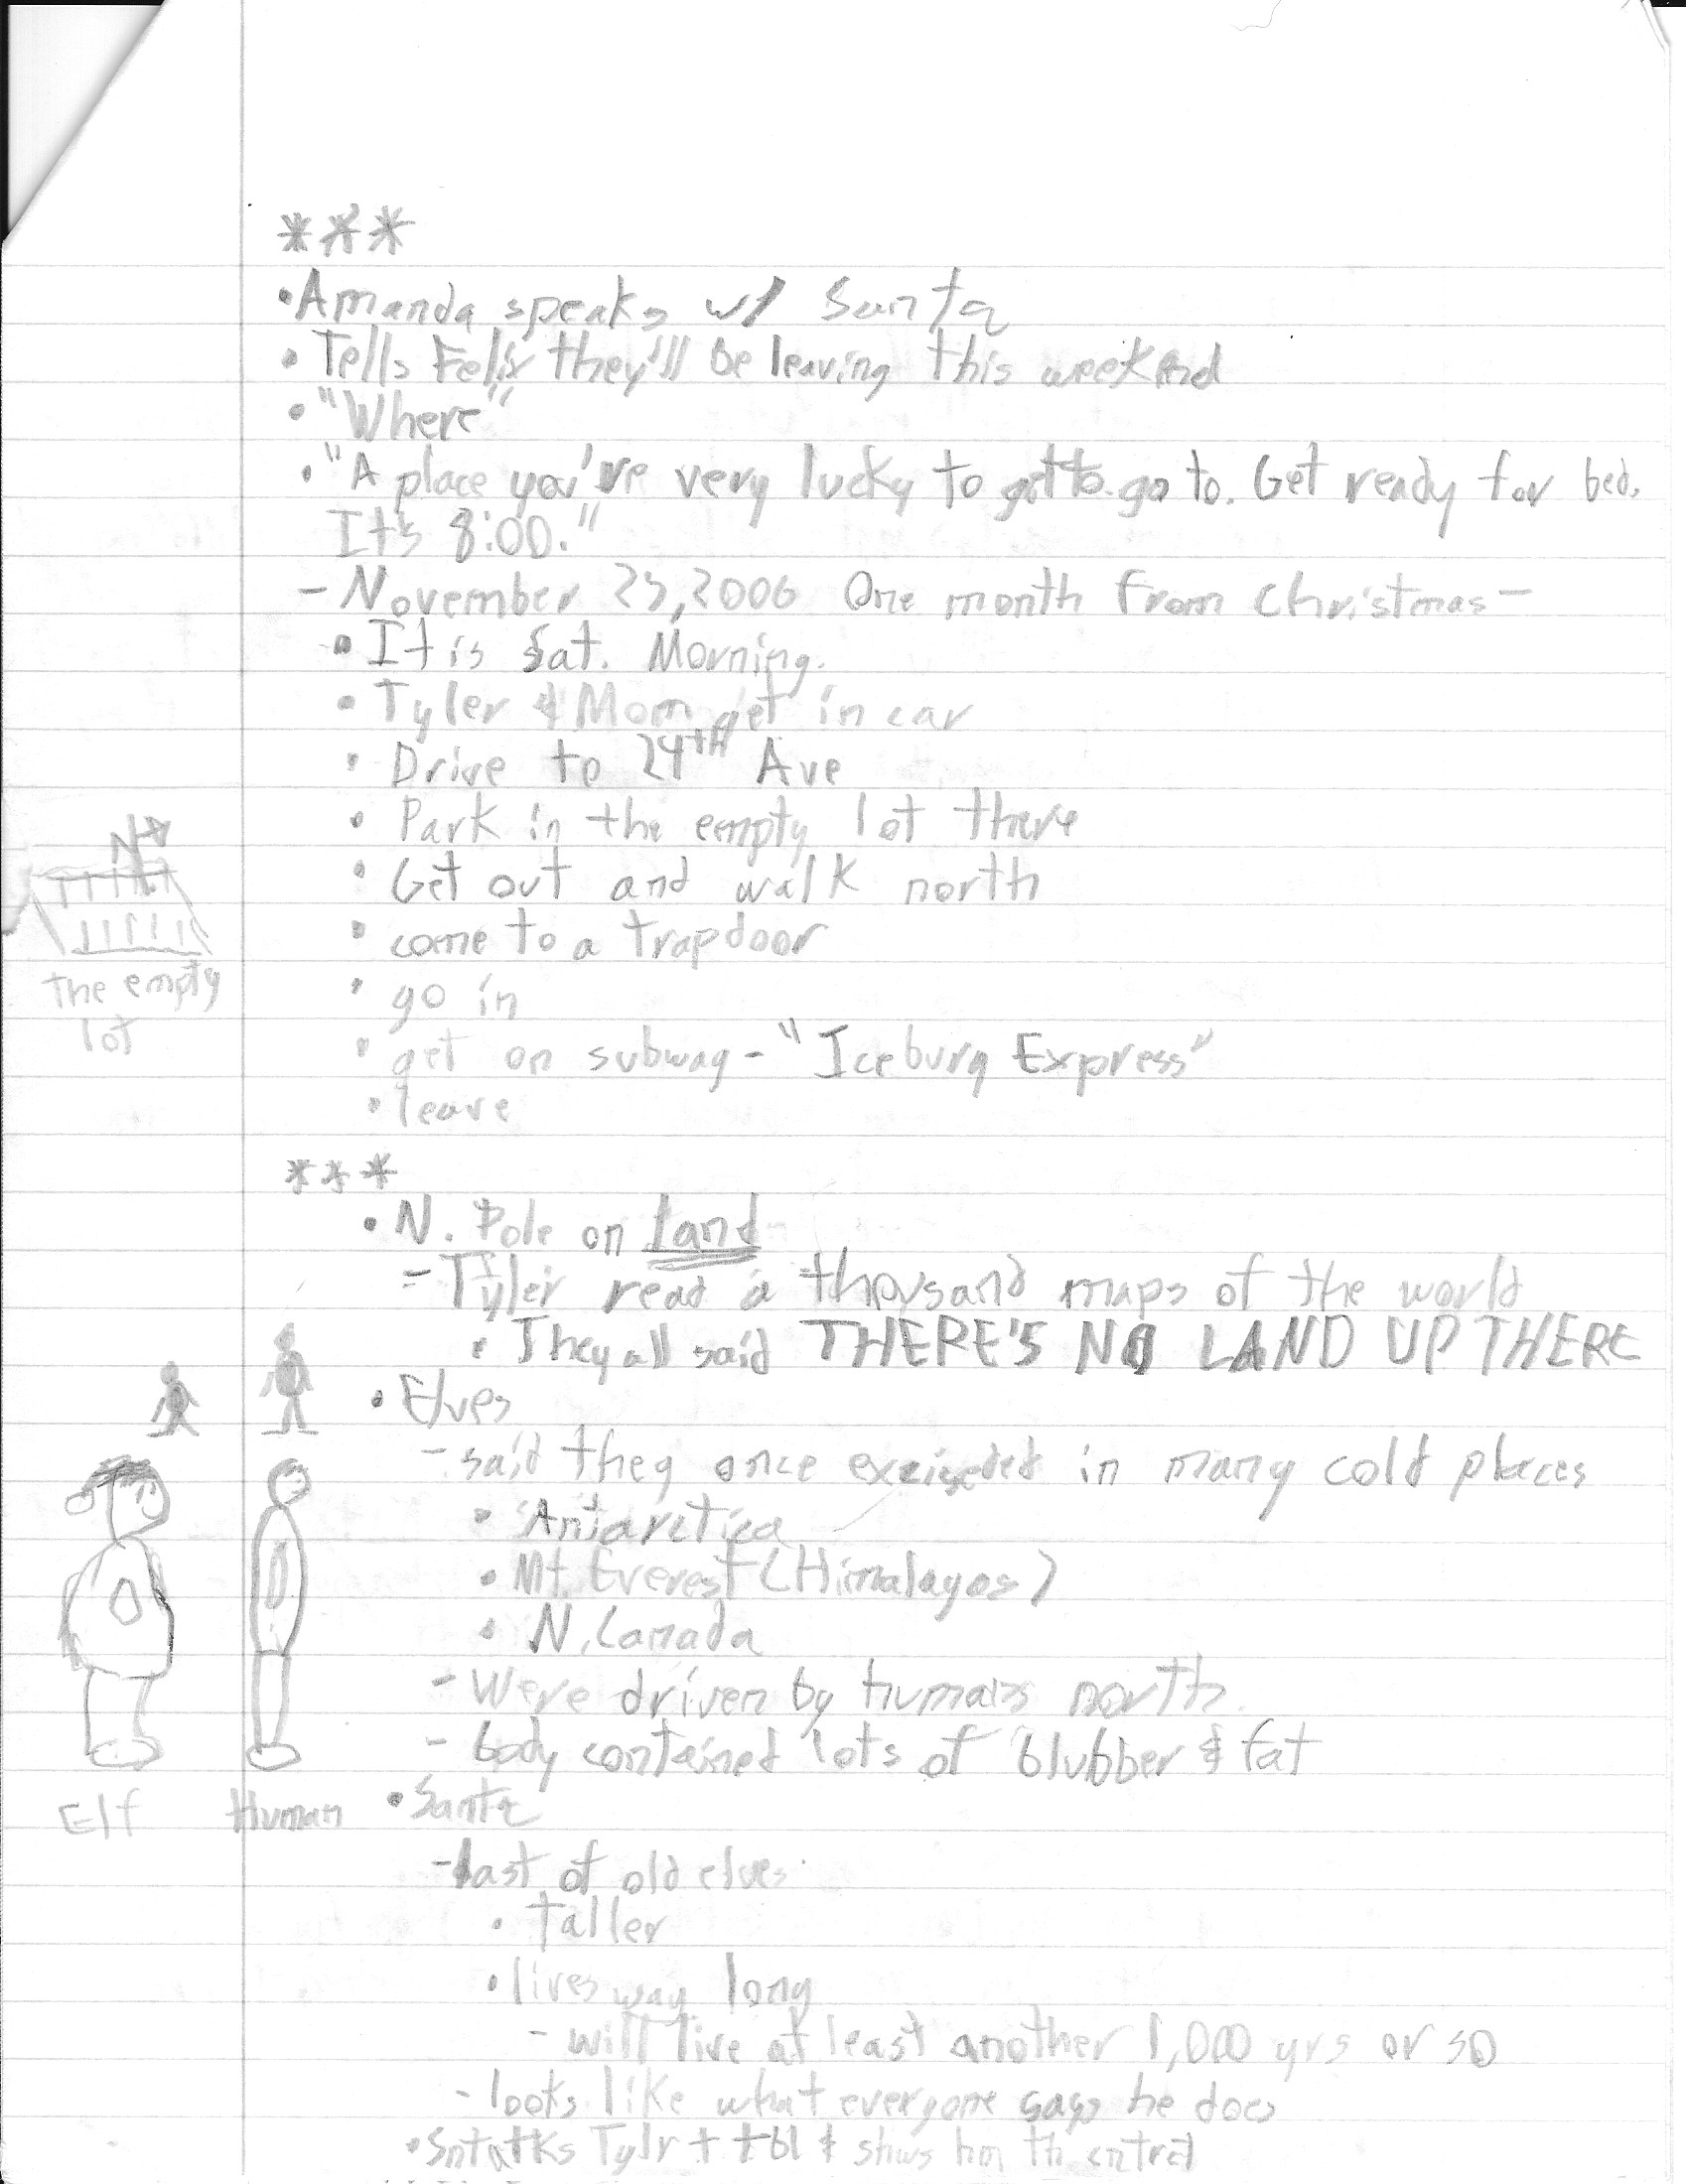 ***
• Amanda speaks w/ Santa
• Tells Felix they'll be leaving this weekend
• "Where"
• "A place you're very lucky to get to go to. Get ready for bed.
It's 8:00."
- November 25, 2006 One month from Christmas -
• It is Sat. Morning.
• Tyler & Mom get in car
• Drive to 24TH Ave
• Park in the empty lot there
• Get out and walk north
• come to a trapdoor
• go in
• get on subway - "Iceburg Express"
• leave
N
the empty
lot
***
• N. Pole on land
- Tyler read a thousand maps of the world
• They all said THERE'S NO LAND UP THERE
• Elves
- said they once in many cold places
• Antarctica
• Mt. Everest (Himalayas)
• N. Canada
- Were driven by humans north
- body contained lots of blubber & fat
Elf Human
• Santa
- last of old elves
• taller
• lives way long
- will live at least another 1,000 yrs or so
- looks like what everyone says he does
• Tylr t tbl & shws hm th cntrl